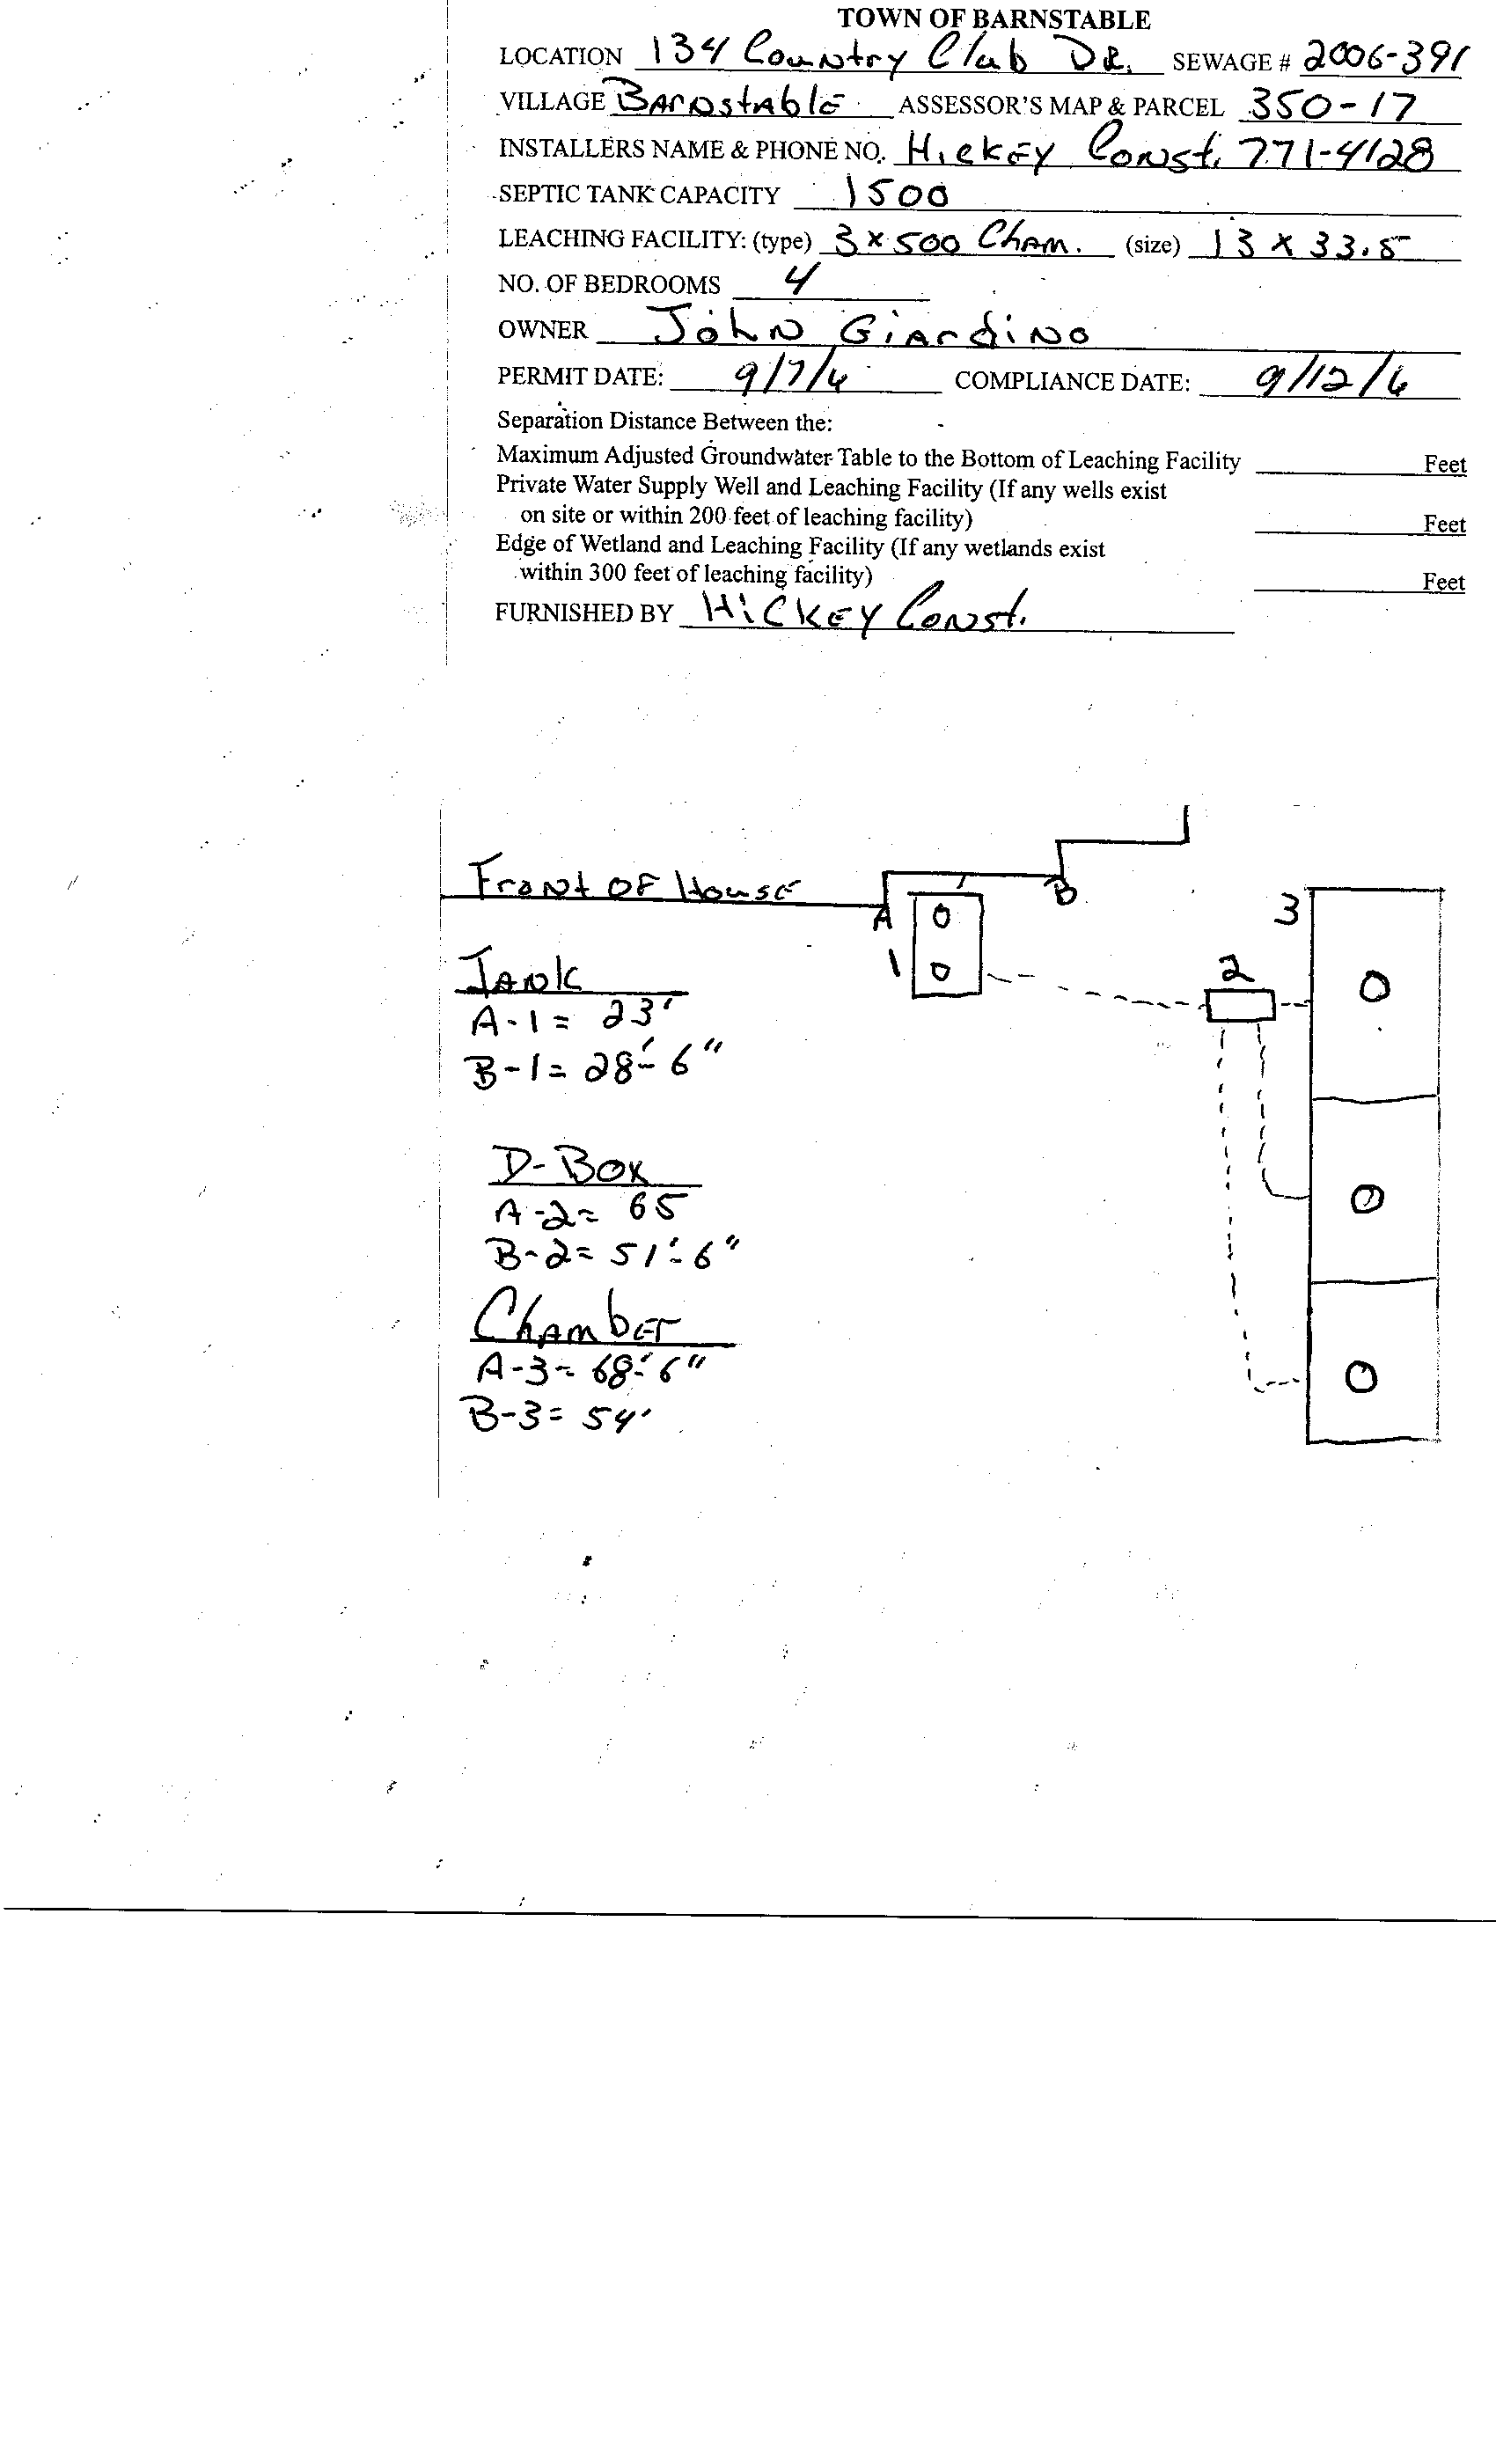 TOWN OF BARNSTABLE
LOCATION 134 Country Club DR. SEWAGE # 2006-391
VILLAGE Barnstable ASSESSOR'S MAP & PARCEL 350-17
INSTALLERS NAME & PHONE NO. Hickey Const. 771-4128
SEPTIC TANK CAPACITY 1500
LEACHING FACILITY: (type) 3 x 500 Cham. (size) 13 x 33.5
NO. OF BEDROOMS 4
OWNER John Giardino
PERMIT DATE: 9/7/6 COMPLIANCE DATE: 9/12/6
Separation Distance Between the:
Maximum Adjusted Groundwater Table to the Bottom of Leaching Facility Feet
Private Water Supply Well and Leaching Facility (If any wells exist
on site or within 200 feet of leaching facility) Feet
Edge of Wetland and Leaching Facility (If any wetlands exist
within 300 feet of leaching facility) Feet
FURNISHED BY Hickey Const.
Front OF House
A
B
1
2
3
Tank
A-1= 23'
B-1= 28'-6"
D-Box
A-2= 65
B-2= 51'-6"
Chamber
A-3= 68'-6"
B-3= 54'